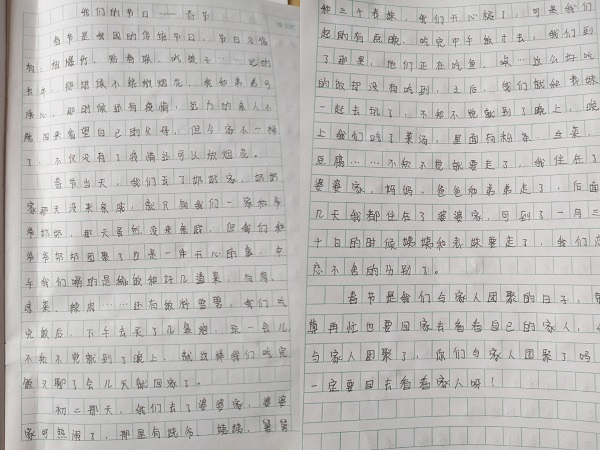 我们的节日——春节
春节是我国的传统节日，节日习俗
有：放爆竹、贴春联、吃饺子……记的
去年，那时候不能放烟花，我和弟弟可
伤心，那时候还有疫情，远方的亲人不
能回来看望自己的父母，但今年不一样
了，不仅没有了疫情还可以放烟花。
春节当天，我们去了奶奶家，奶奶
家那天没来亲戚，就只有我们一家和爷
爷奶奶，那天虽然没来亲戚，但我们和
爷爷奶奶团聚了也是一件开心的事，中
午我们喝的是
完饭后，下午去买了几鱼炮，玩一会儿
不知不觉就到了晚上，就这样我们吃完
饭又聊了会几天就回家了。
初二那天，我们去了婆婆家，婆婆
家可热闹了，那里有姨爷、姨姨、舅舅
和三个表妹，我们开心极了，可是我们
起的有点晚，吃完中午饭才去，我们到
了那里，他们正在吃鱼，唉……这么好吃
的饭却没有吃到，之后，我们就和表妹
一起去玩了，不知不觉就到了晚上，晚
上我们喝了菜汤，里面有粉条、白菜、
豆腐……不知不觉就要走了，我住在了
婆婆家，妈妈、爸爸和弟弟走了，后面
几天我都住在了婆婆家，可到了一月三
十日的时候姨姨和表妹要走了，我们恋
恋不舍的分别了。
春节是我们与家人团聚的日子，
再忙也要回家去看看自己的家人，
与家人团聚了，你们与家人团聚了吗
一定要回去看看家人呀！